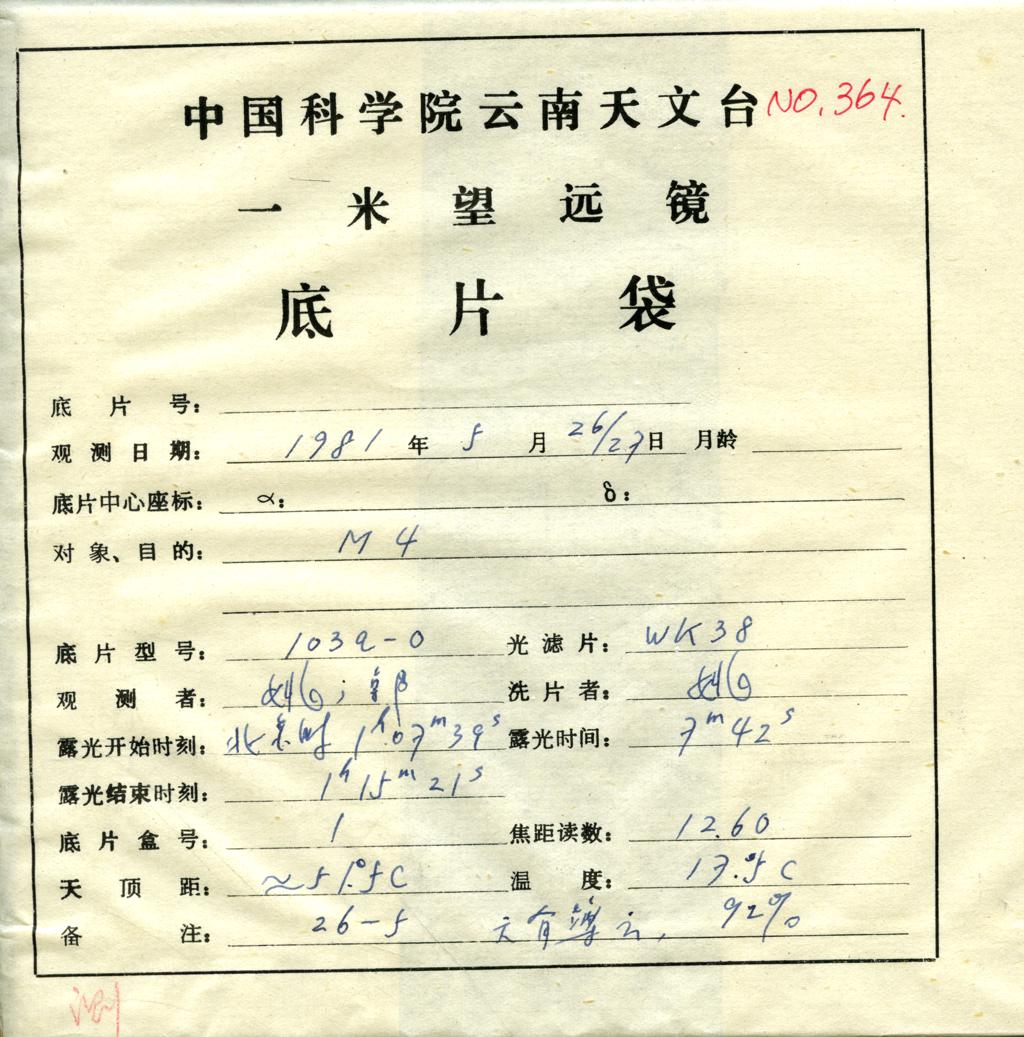 中国科学院云南天文台 NO.364.
一米望远镜
底片袋
底片号：
观测日期： 1981 年 5 月 26/27 日 月龄
底片中心座标： α： δ：
对象、目的： M 4
底片型号： 103a-O 光滤片： WK38
观测者： 洗片者：
露光开始时刻： 北京时 1h07m39s 露光时间： 7m42s
露光结束时刻： 1h15m21s
底片盒号： 1 焦距读数： 12.60
天顶距： ≈51.°5C 温度： 17.°5C
备注： 26-5 天有薄云, 92%
测